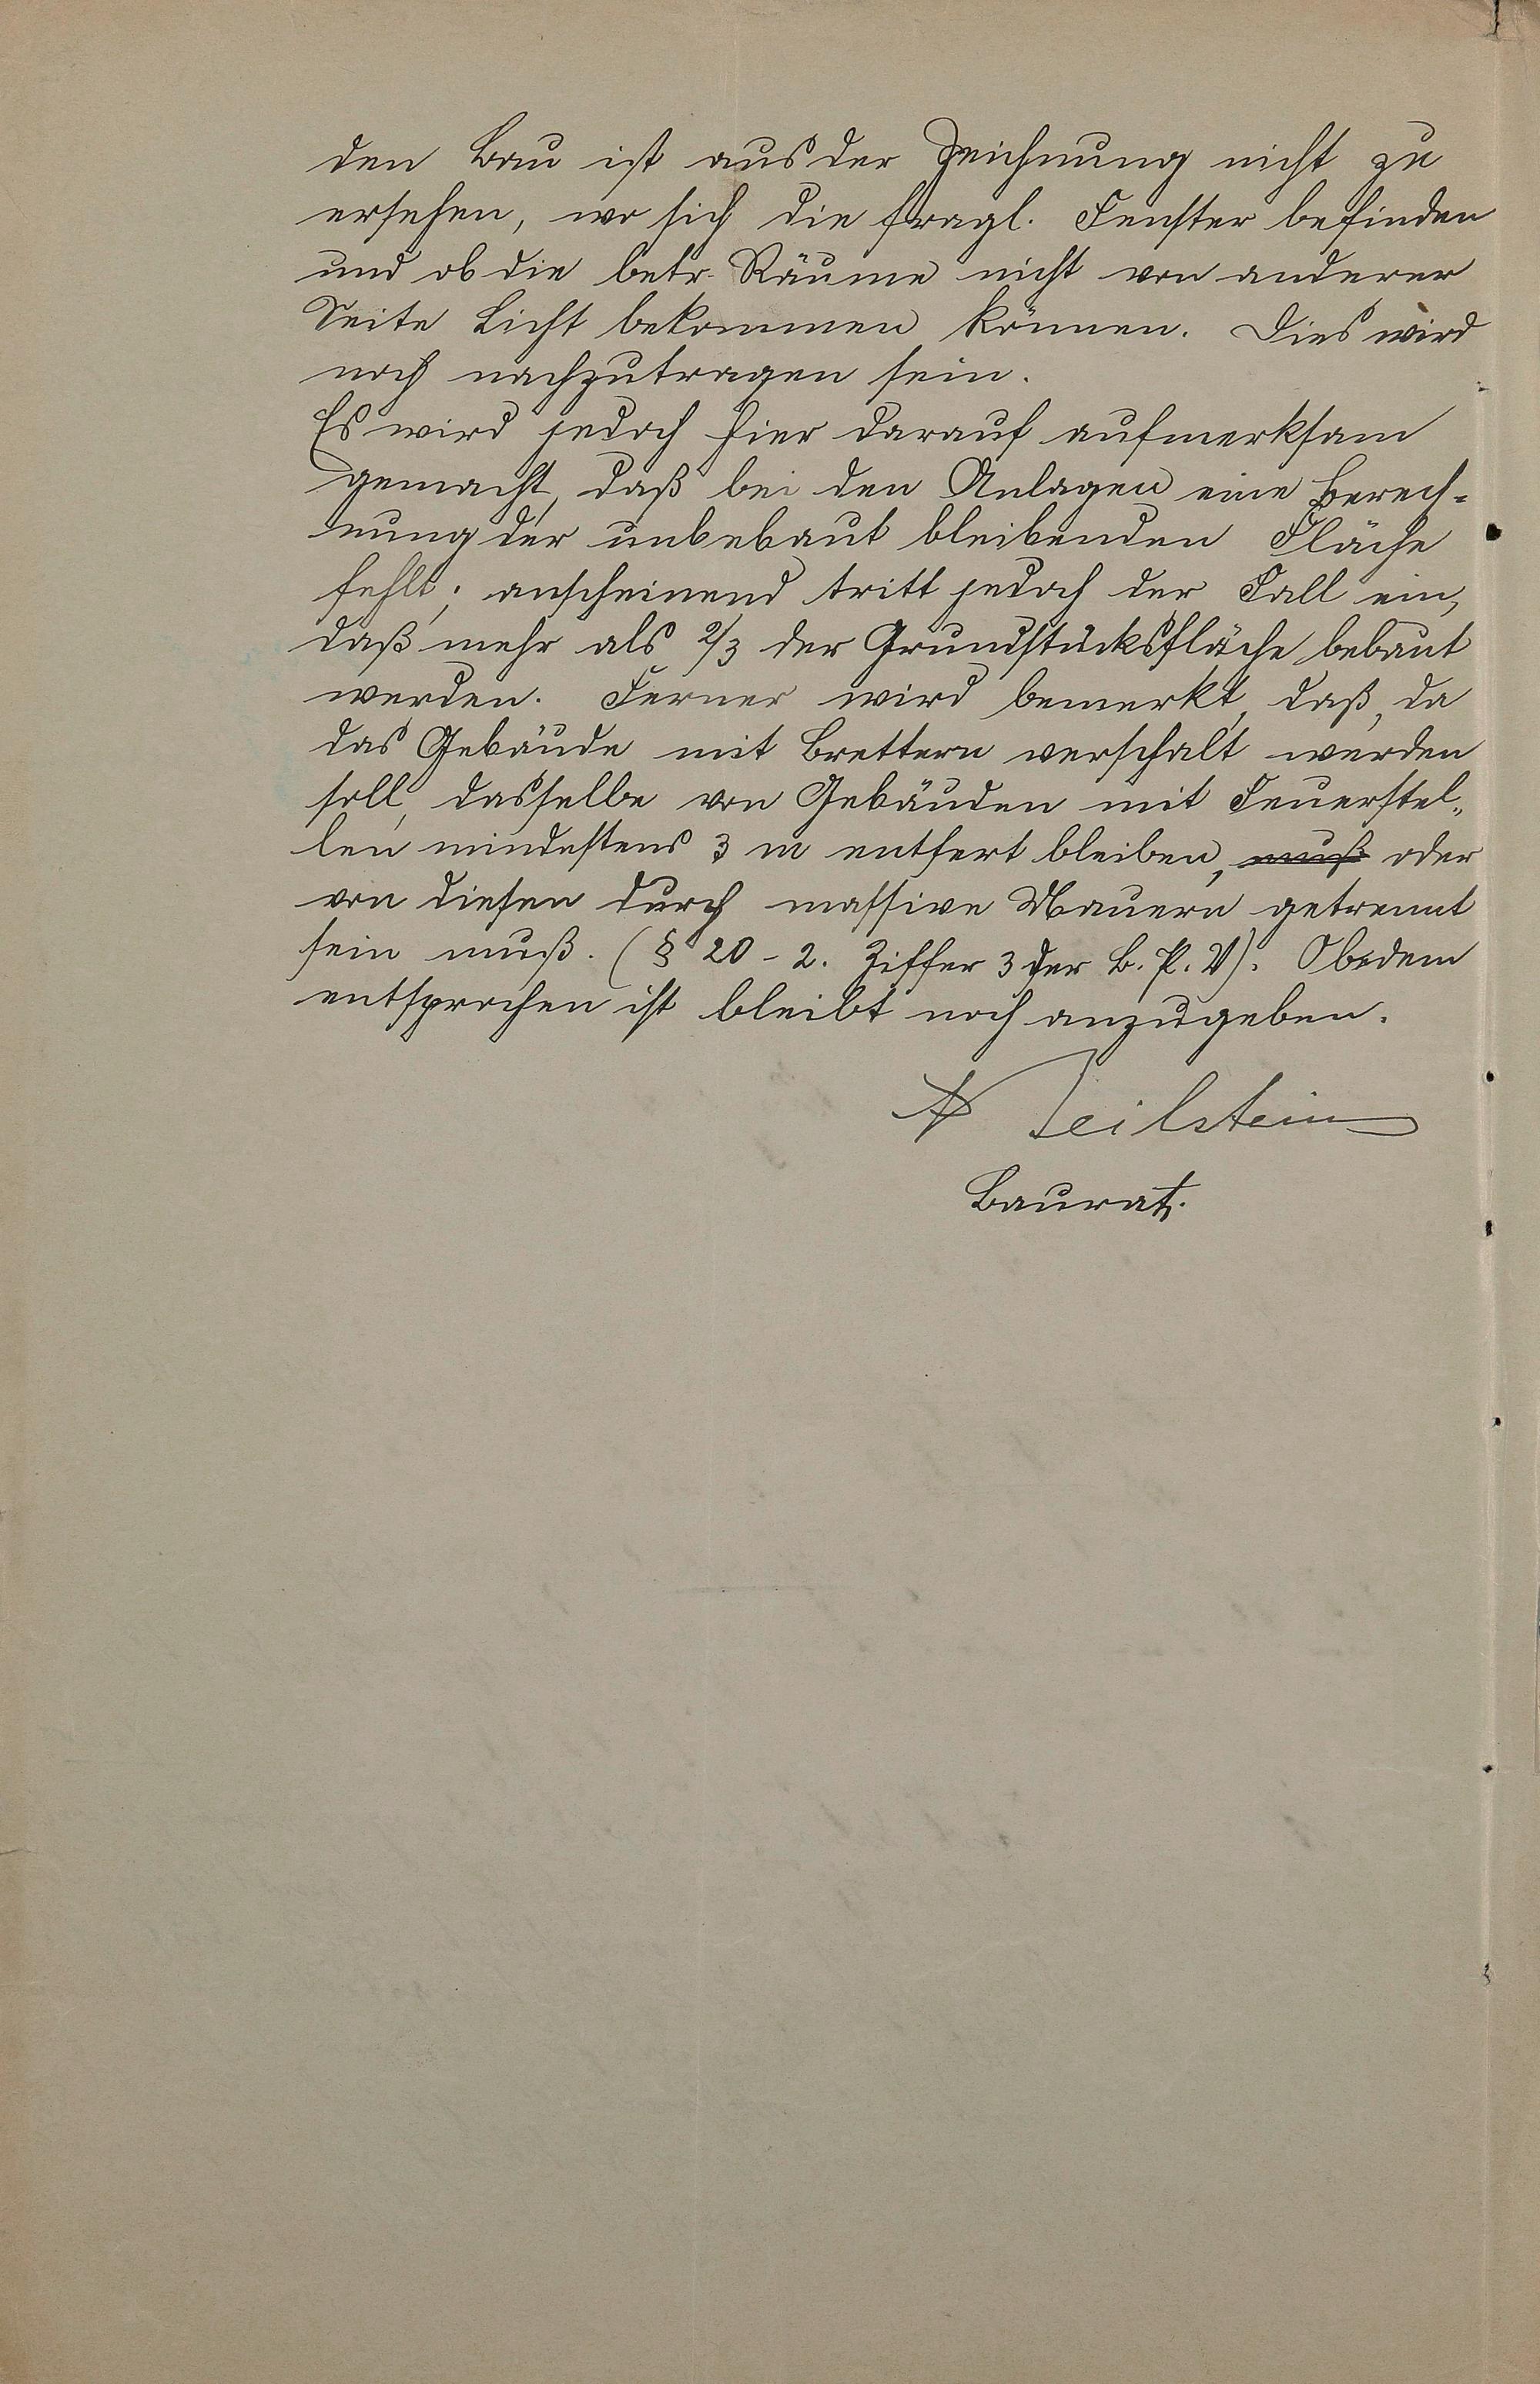 den Bau ist aus der Zeichnung nicht zu
ersehen, wo sich die fragl. Fenster befinden
und ob die betr. Räume nicht von anderer
Seite Licht bekommen können. Dies wird
noch nachzutragen sein.
Es wird jedoch hier darauf aufmerksam
gemacht, daß bei den Anlagen eine Berech=
nung der unbebaut bleibenden Fläche
fehlt; anscheinend tritt jedoch der Fall ein,
daß mehr als 2/3 der Grundstücksfläche bebaut
werden. Ferner wird bemerkt, daß, da
das Gebäude mit Brettern verschalt werden
soll, dasselbe von Gebäuden mit Feuerstel„
len mindestens 3 m entfert bleiben, muß oder
von diesen durch massive Mauern getrennt
sein muß. (§ 20 - 2. Ziffer 3 der B. P. V). Ob dem
entsprochen ist bleibt noch anzugeben.
Beilstein
Baurat.